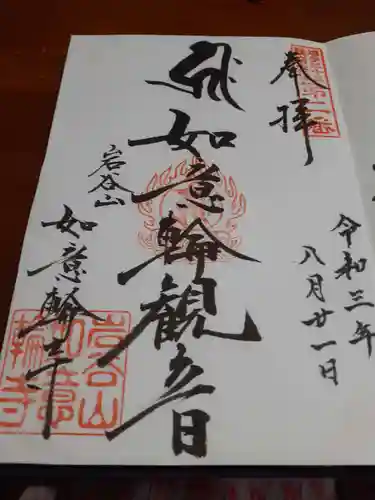 奉拝
令和三年
八月廿一日
如意輪観音
岩谷山
如意輪寺
岩谷山
如意
輪寺